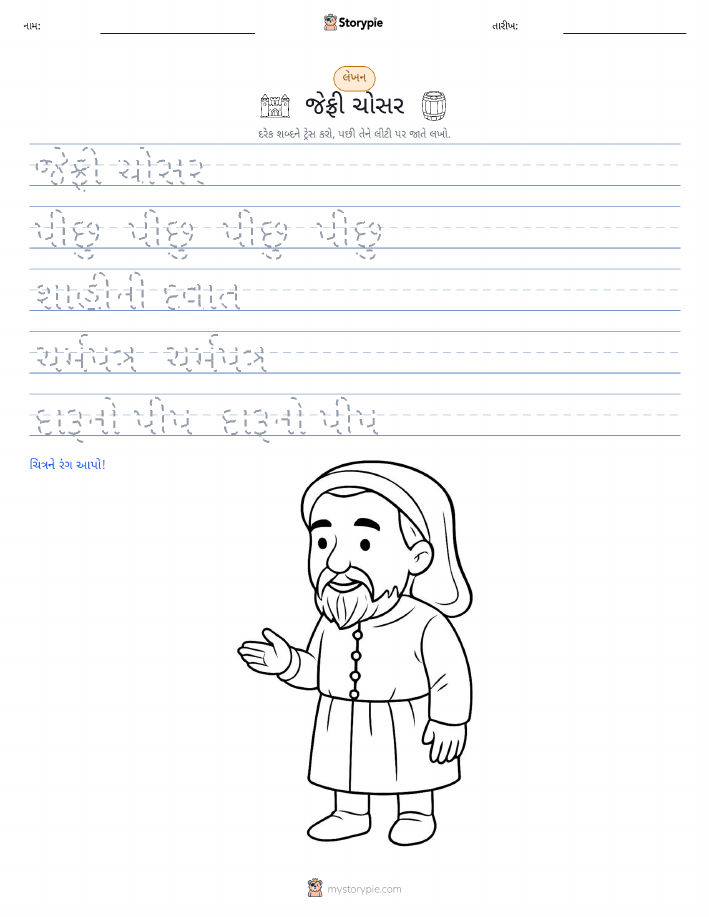 નામ:
Storypie
તારીખ:
લેખન
જેફ્રી ચોસર
દરેક શબ્દને ટ્રેસ કરો, પછી તેને લીટી પર જાતે લખો.
જેફ્રી ચોસર
પીછું પીછું પીછું પીછું
શાહીની દવાત
ચર્મપત્ર ચર્મપત્ર
દારૂનો પીપ દારૂનો પીપ
ચિત્રને રંગ આપો!
mystorypie.com